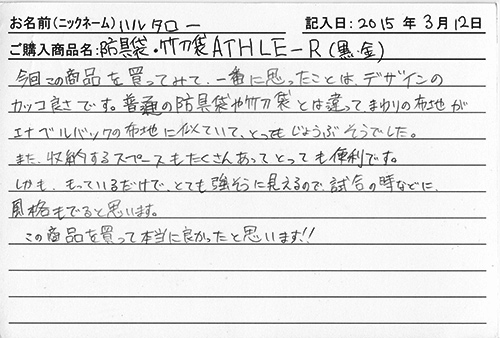 お名前(ニックネーム) ハルタロー 記入日:2015年3月12日
ご購入商品名:防具袋・竹刀袋ATHLE-R(黒・金)
今回この商品を買ってみて、一番に思ったことは、デザインの
カッコ良さです。普通の防具袋や竹刀袋とは違ってまわりの布地が
エナベルバックの布地に似ていて、とってもじょうぶそうでした。
また、収納するスペースもたくさんあってとっても便利です。
しかも、もっているだけで、とても強そうに見えるので、試合の時などに、
風格もでると思います。
この商品を買って本当に良かったと思います!!